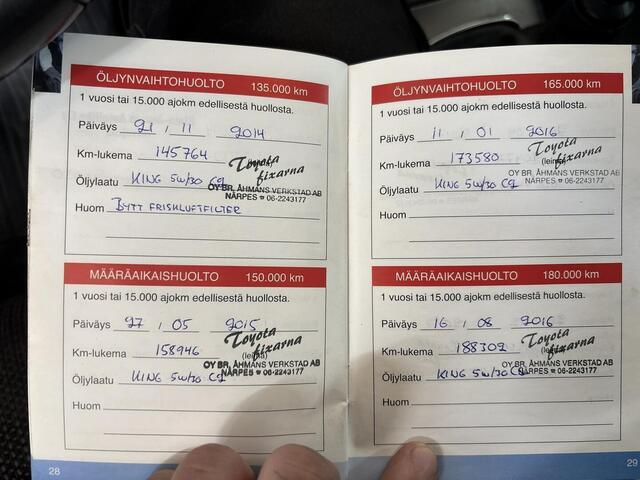 ÖLJYNVAIHTOHUOLTO 135.000 km
1 vuosi tai 15.000 ajokm edellisestä huollosta.
Päiväys 21 / 11 2014
Km-lukema 145764
Toyota fixarna
Öljylaatu KING 5W/30 C2
OY BR. ÅHMANS VERKSTAD AB
NÄRPES ☎ 06-2243177
Huom BYTT FRISKLUFTFILTER
MÄÄRÄAIKAISHUOLTO 150.000 km
1 vuosi tai 15.000 ajokm edellisestä huollosta.
Päiväys 27 / 05 2015
Km-lukema 158946
(leima)
Toyota fixarna
Öljylaatu KING 5W/30 C2
OY BR. ÅHMANS VERKSTAD AB
NÄRPES ☎ 06-2243177
Huom
28
ÖLJYNVAIHTOHUOLTO 165.000 km
1 vuosi tai 15.000 ajokm edellisestä huollosta.
Päiväys 11 / 01 2016
Km-lukema 173580
(leima)
Toyota fixarna
Öljylaatu KING 5W/30 C2
OY BR. ÅHMANS VERKSTAD AB
NÄRPES ☎ 06-2243177
Huom
MÄÄRÄAIKAISHUOLTO 180.000 km
1 vuosi tai 15.000 ajokm edellisestä huollosta.
Päiväys 16 / 08 2016
Km-lukema 188302
(leima)
Toyota fixarna
Öljylaatu KING 5W/30 C2
OY BR. ÅHMANS VERKSTAD AB
NÄRPES ☎ 06-2243177
Huom
29